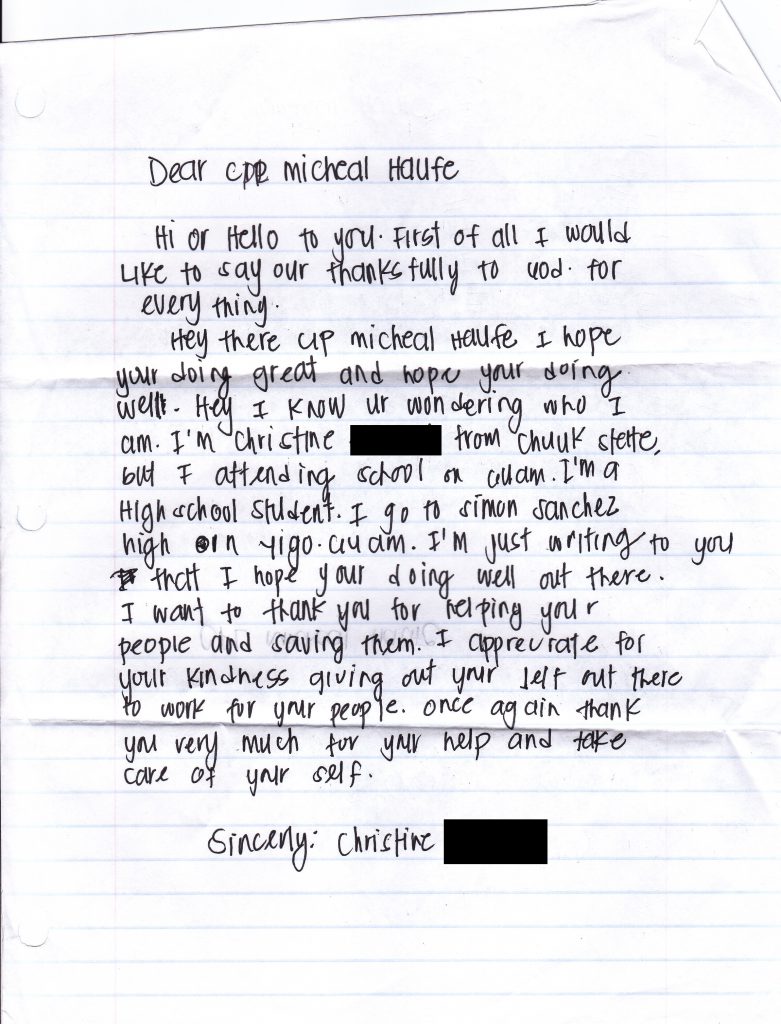 Dear CPL micheal Haufe
Hi or Hello to you. First of all I would
Like to say our thanksfully to God. for
every thing.
Hey there CPL micheal Haufe I hope
your doing great and hope your doing.
well. Hey I know ur wondering who I
am. I'm Christine from Chuuk State,
but I attending school on Guam. I'm a
High school student. I go to simon sanchez
high in Yigo. Guam. I'm just writing to you
that I hope your doing well out there.
I want to thank you for helping your
people and saving them. I apprecrate for
your kindness giving out your self out there
to work for your people. once again thank
you very much for your help and take
care of your self.
Sincerly: Christine